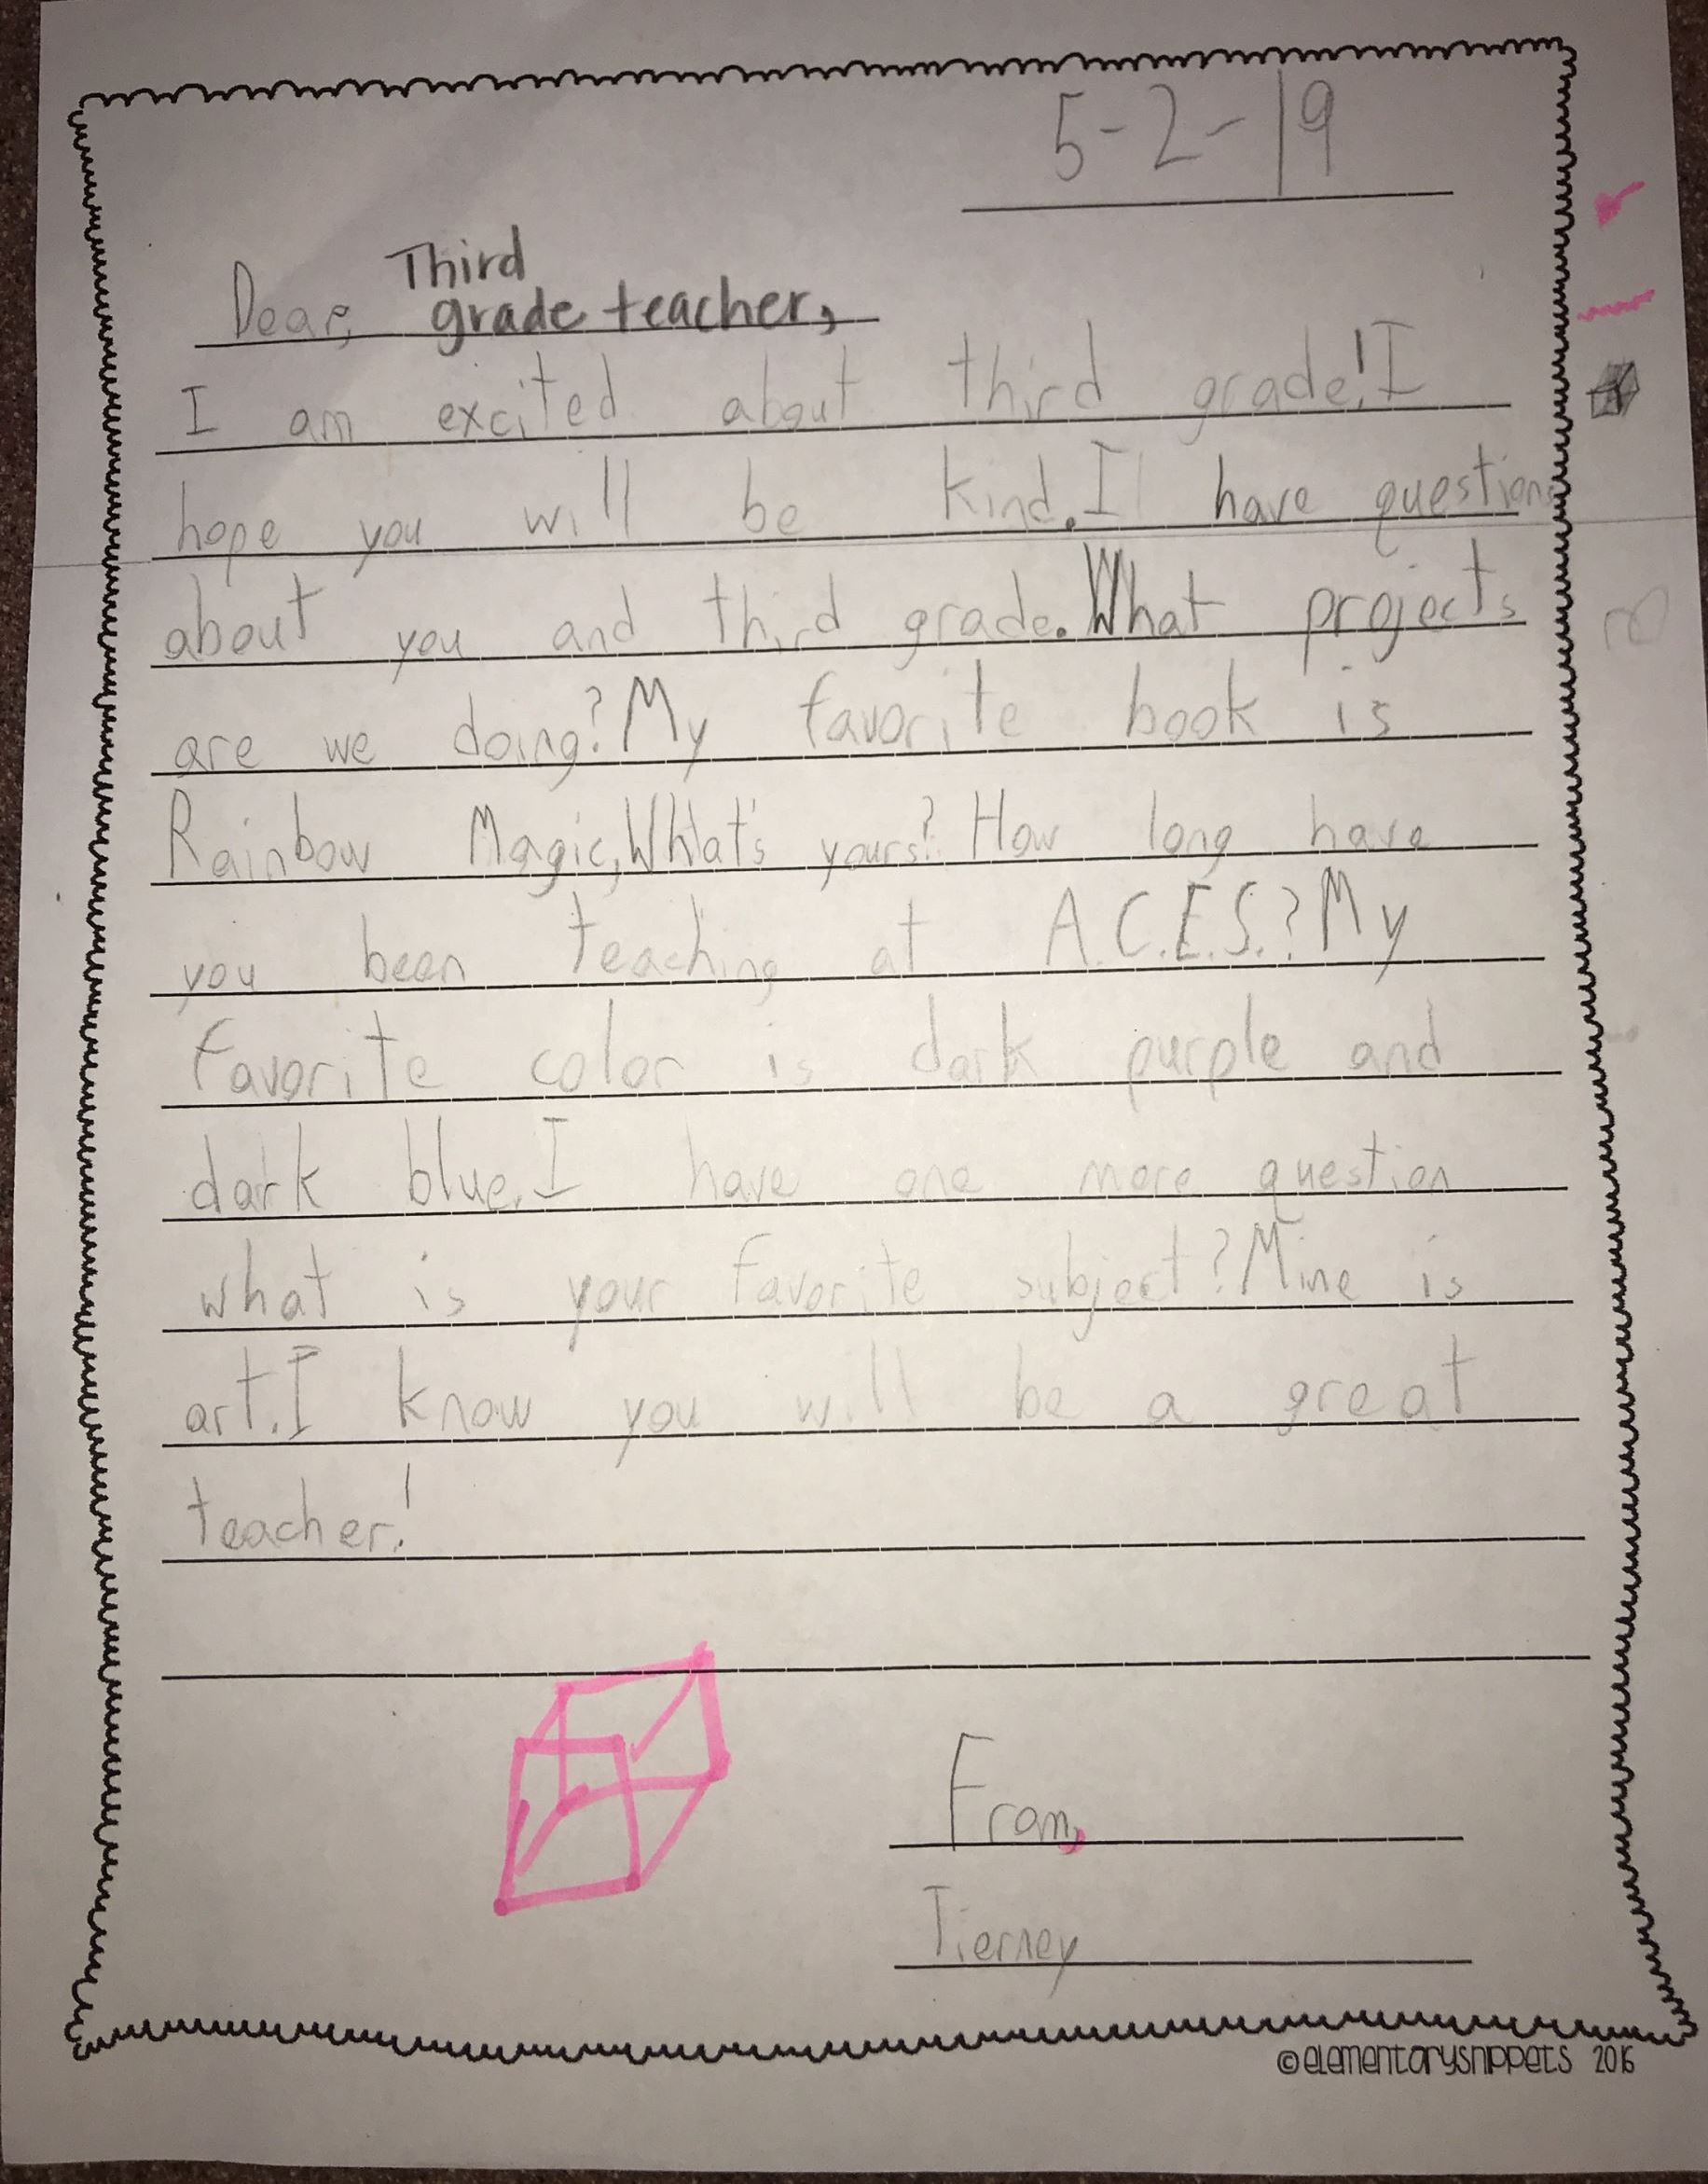 5-2-19
Third
Dear, grade teacher,
I am excited about third grade! I
hope you will be kind. I have questions
about you and third grade. What projects
are we doing? My favorite book is
Rainbow Magic, What's yours? How long have
you been teaching at A.C.E.S.? My
favorite color is dark purple and
dark blue. I have one more question
what is your favorite subject? Mine is
art. I know you will be a great
teacher!
From,
Tierney
©elementarysnippets 2016